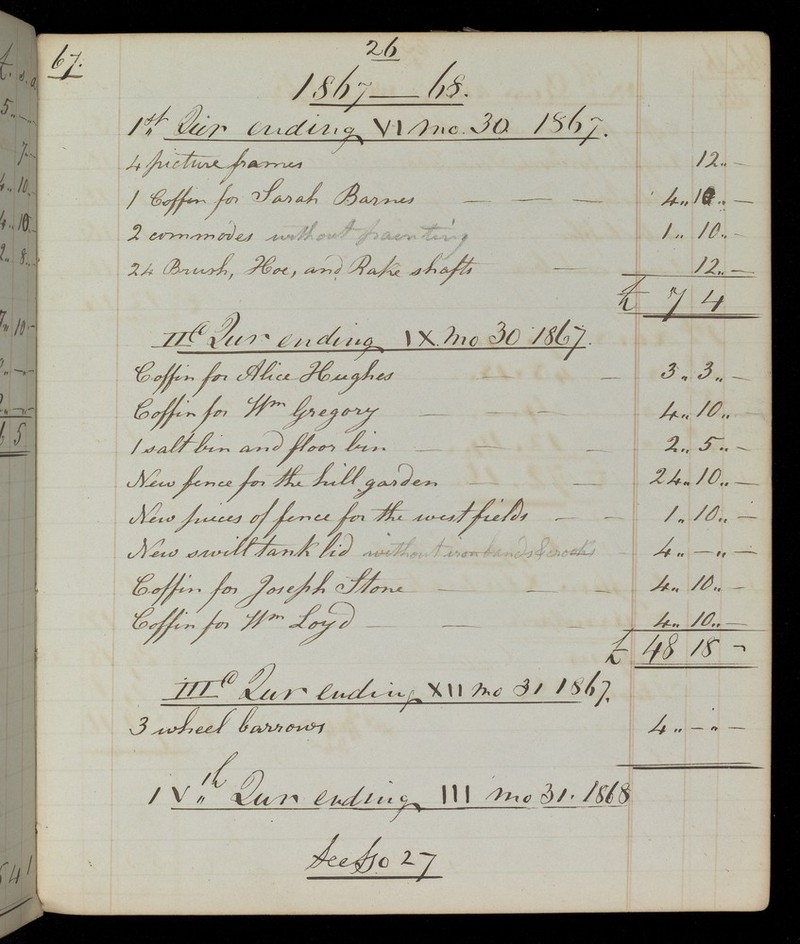 67.
26
1867—68.
1st Qur ending VI Mo. 30 1867.
4 picture frames 12 „ —
1 Coffin for Sarah Barnes — — — 4 „ 10 „ —
2 commodes without painting 1 „ 10 „ —
24 Brush, Hoe, and Rake shafts — 12 „ —
£ 7 4
IId Qur ending IX. Mo 30 1867.
Coffin for Alice Hughes — 3 „ 3 „ —
Coffin for Wm Gregory — — — 4 „ 10 „
1 salt bin and floor bin — — — 2 „ 5 „ —
New fence for the hill garden — — 24 „ 10 „ —
New pieces of fence for the west fields — — 1 „ 10 „ —
New swill tank lid without iron bands & crooks — 4 „ — „ —
Coffin for Joseph Stone — — — 4 „ 10 „ —
Coffin for Wm Loyd — — 4 „ 10 „ —
£ 48 18 -
IIId Qur ending XII Mo 31 1867.
3 wheel barrows 4 „ — „ —
IV„th Qur ending III mo 31. 1868
See fo 27